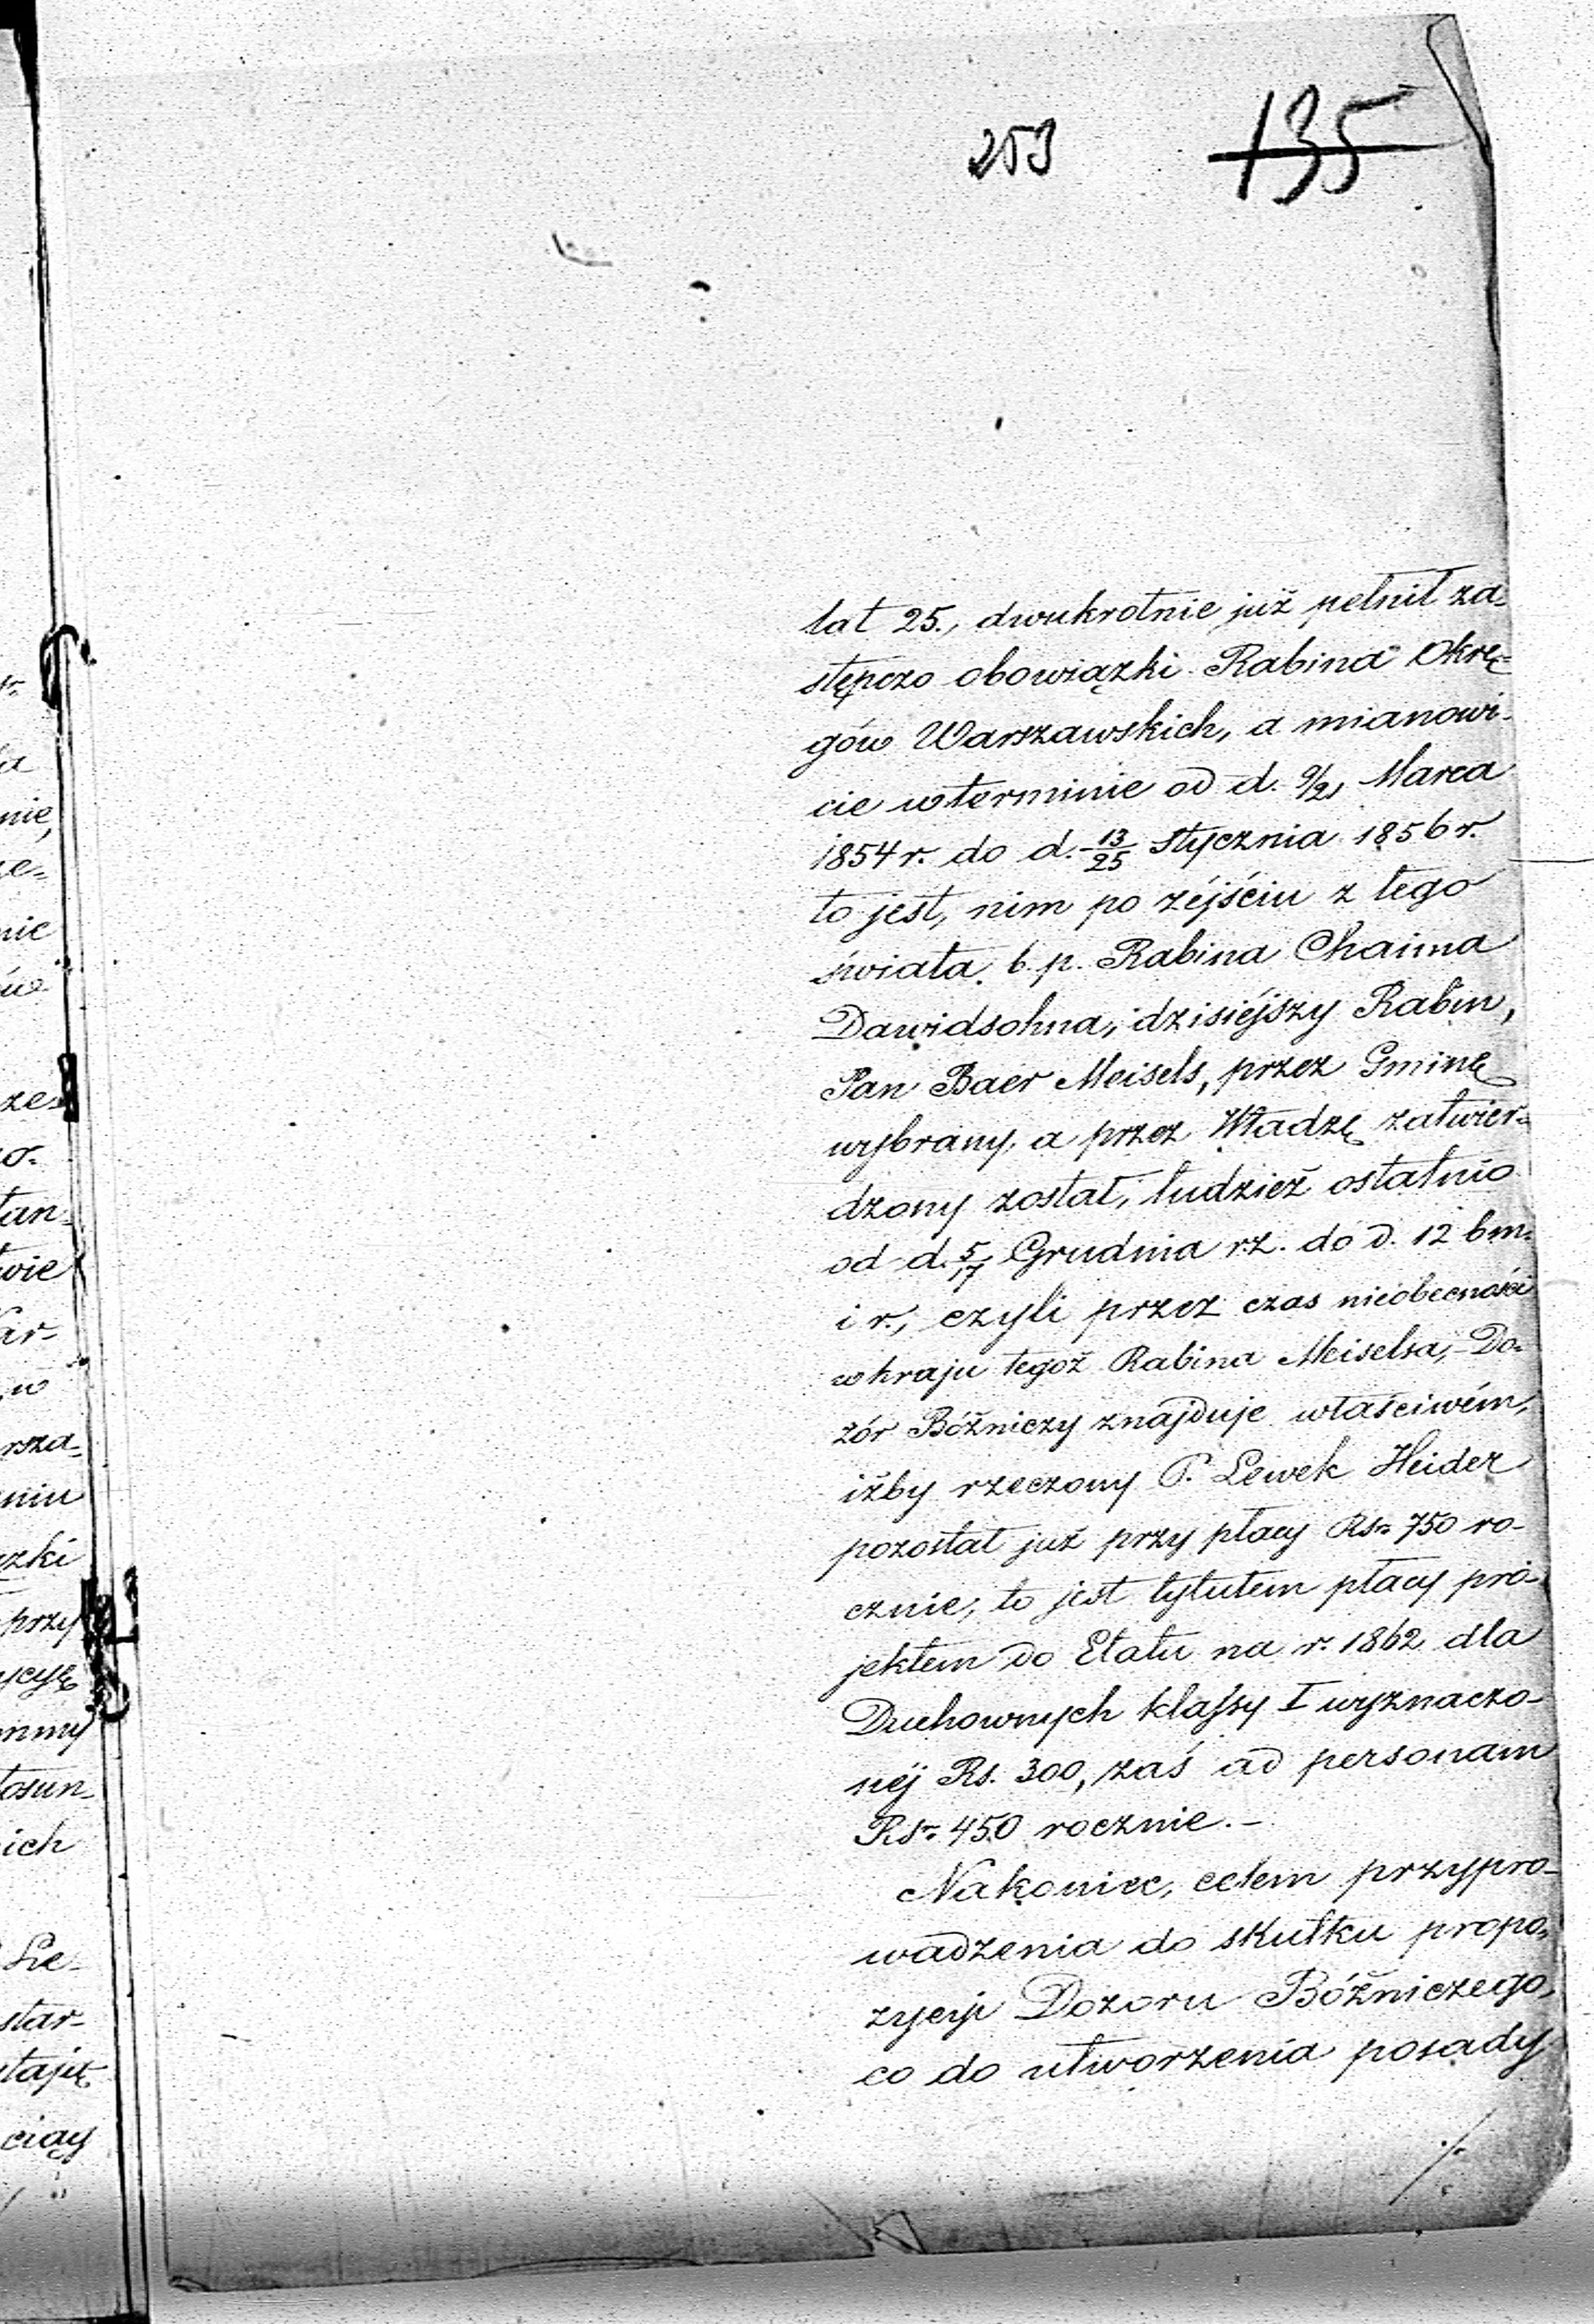 253 135
lat 25., dwukrotnie już pełnił za-
stępczo obowiązki Rabina Okrę-
gów Warszawskich, a mianowi-
cie w terminie od d. 9/21 Marca
1854 r. do d. 13/25 Stycznia 1856 r.
to jest, nim po zéjściu z tego
świata b. p. Rabina Chaima
Dawidsohna, dzisiéjszy Rabin,
Pan Baer Meisels, przez Gminę
wybrany, a przez Władzę zatwier-
dzony został, tudzież ostatnio
od d. 5/17 Grudnia r.z. do d. 12 b.m.
i r., czyli przez czas nieobecności
w kraju tegoż Rabina Meiselsa, Do-
zór Bóżniczy znajduje właściwém,
iżby rzeczony P. Lewek Heider
pozostał już przy płacy Rsr 750 ro-
cznie, to jest tytułem płacy pro-
jektem do Etatu na r. 1862 dla
Duchownych klassy I wyznaczo-
néj Rs. 300, zaś ad personam
Rsr. 450 rocznie. –
Nakoniec, celem przypro-
wadzenia do skutku propo-
zycyi Dozoru Bóżniczego,
co do utworzenia posady
./.
nie,
nic
ze
tan-
wie
ar-
w
rsza-
niu
zki
przy
ycyę
tosun-
ich
Le-
star-
ciąy